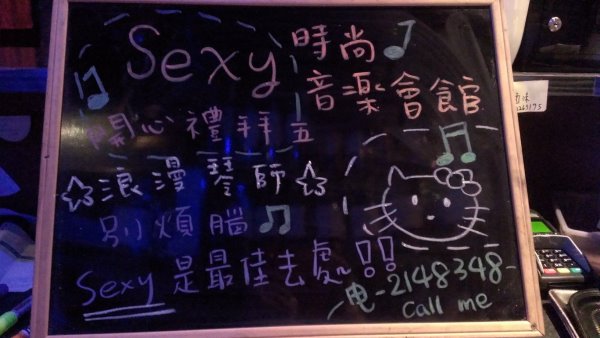 Sexy 時尚
音樂會館
開心禮拜五
☆浪漫琴師☆
別煩腦
Sexy 是最佳去處!!
电-2148348-
Call me